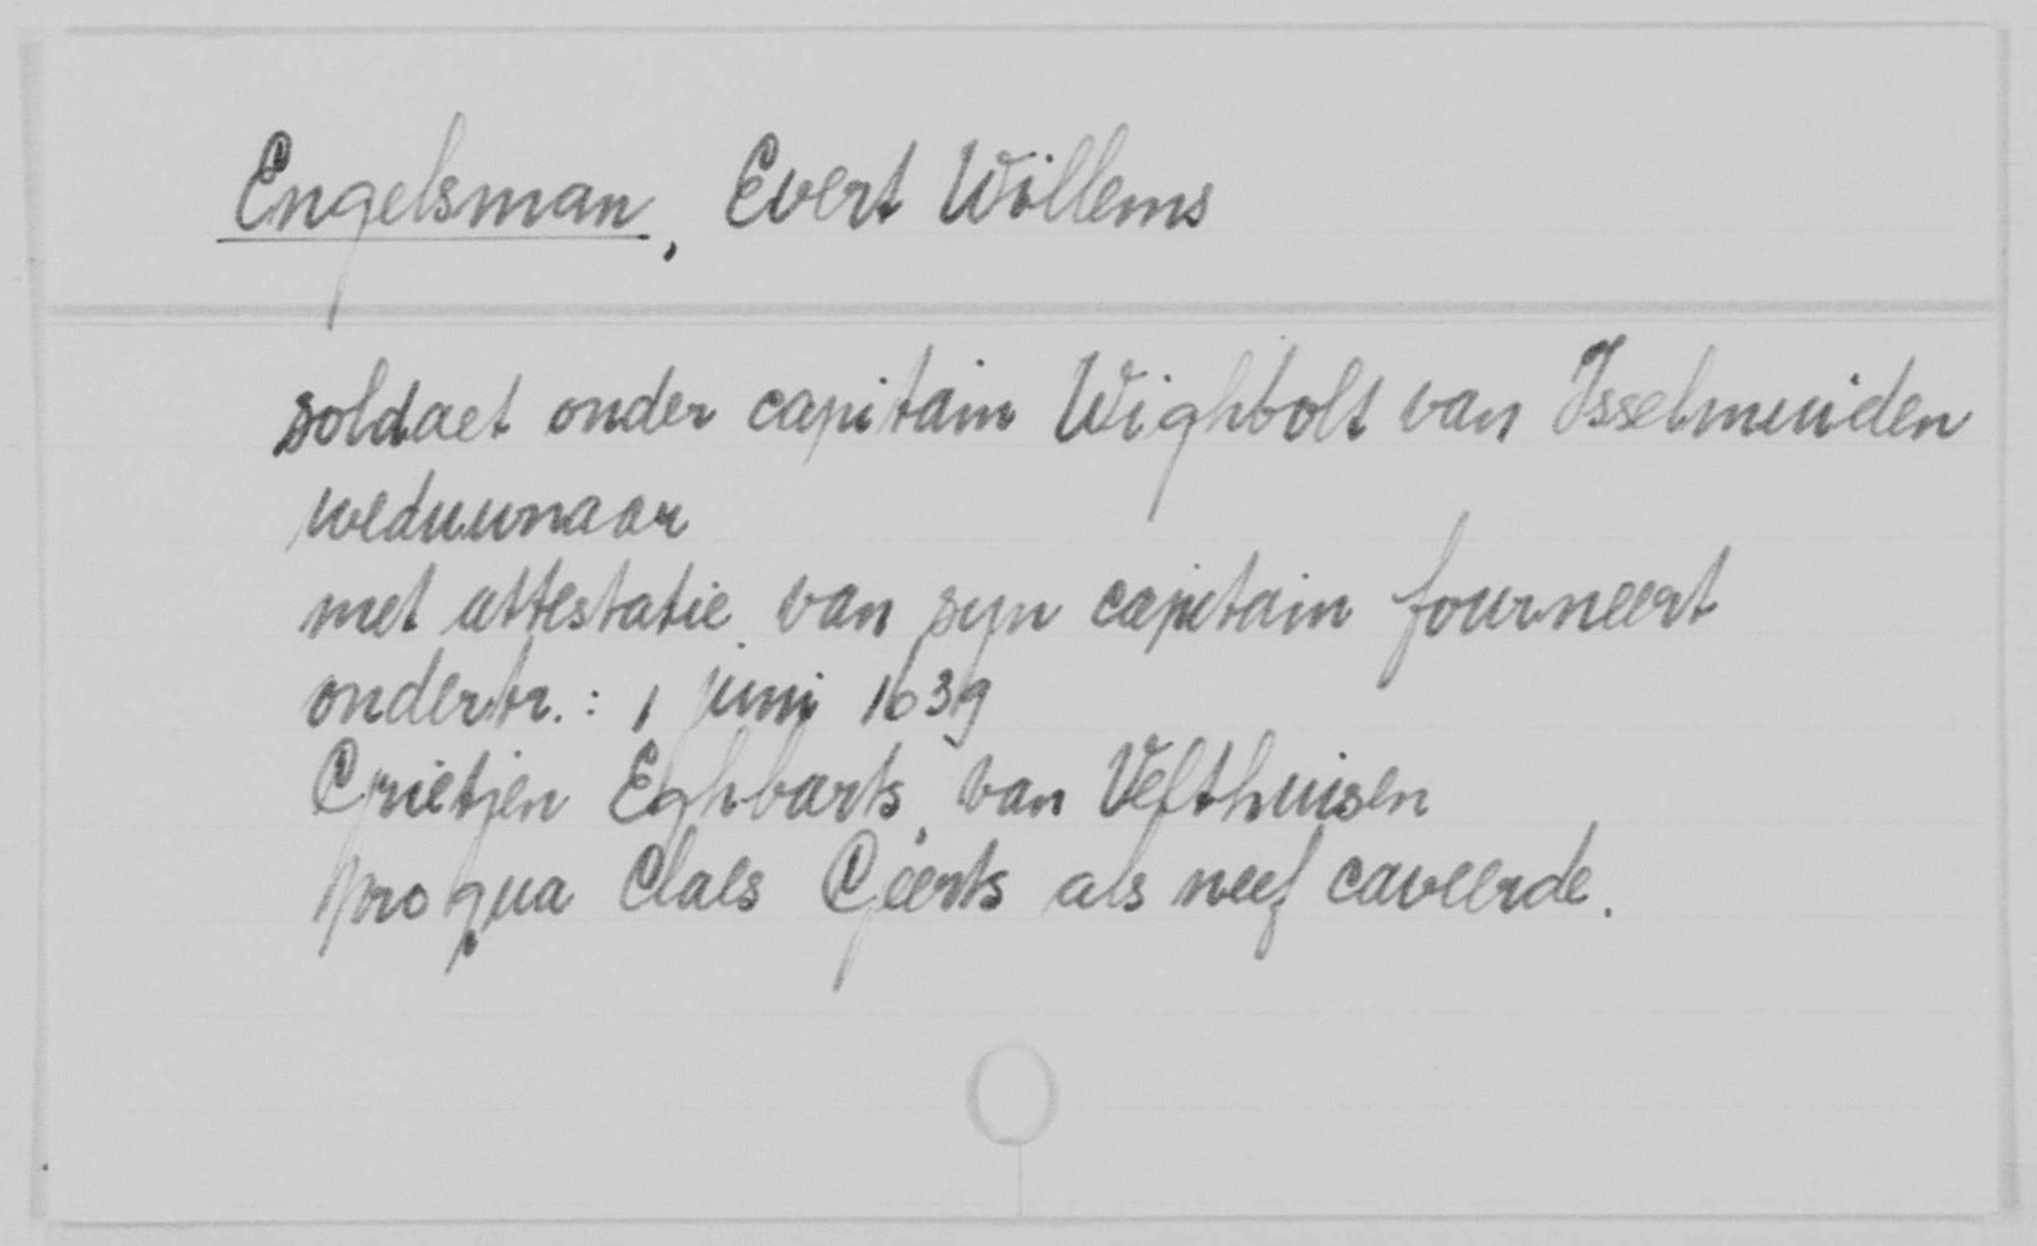 Engelsman, Evert Willems
soldaet onder capitain Wighbolt van Isselmuiden
weduwnaar
met attestatie van syn capitain fourneert
ondertr.: 1 juni 1639
Grietjen Eghbarts, van Velthuisen
pro qua Claes Geerts als neef caveerde.